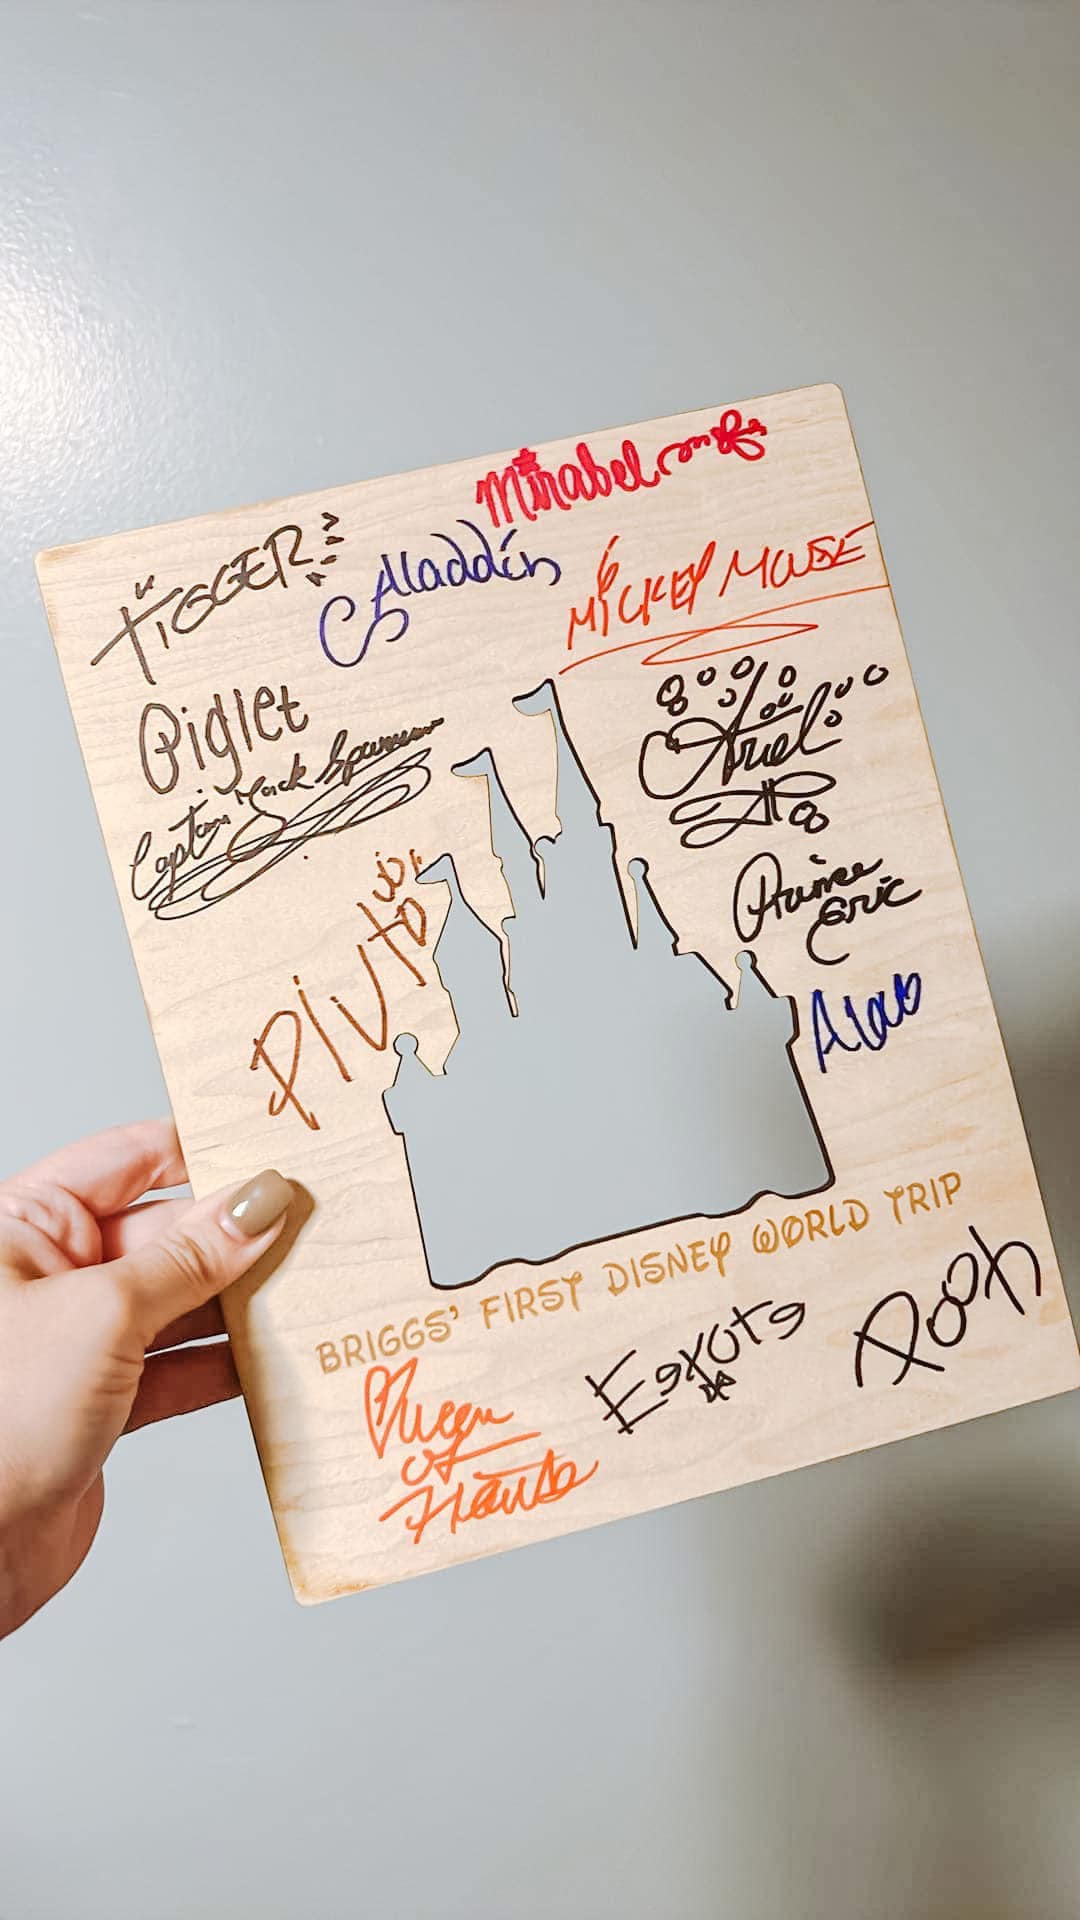 Mirabel
TIGGER
Aladdin
MICKEY MOUSE
Piglet
Captain Jack Sparrow
Ariel
PlUtO
Prince
Eric
BRIGGS' FIRST DISNEY WORLD TRIP
Pooh
EeyOre
Queen
of
Hearts